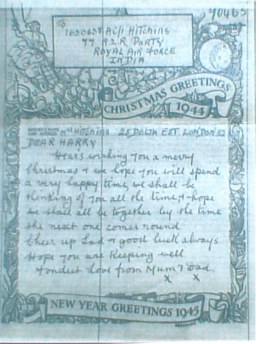 TO
1650659 AC/1 HITCHINS
77 A.S.R. PARTY
ROYAL AIR FORCE
INDIA
CHRISTMAS GREETINGS
1944
HITCHINS EST LONDON
DEAR HARRY
Hears wishing you a merry
Christmas & we hope you will spend
a very happy time, we shall be
thinking of you all the time & hope
we shall all be together by the time
the next one comes round
Cheer up Lad & good luck always
Hope you are keeping well
Fondest love from Mum & Dad
x x
NEW YEAR GREETINGS 1945